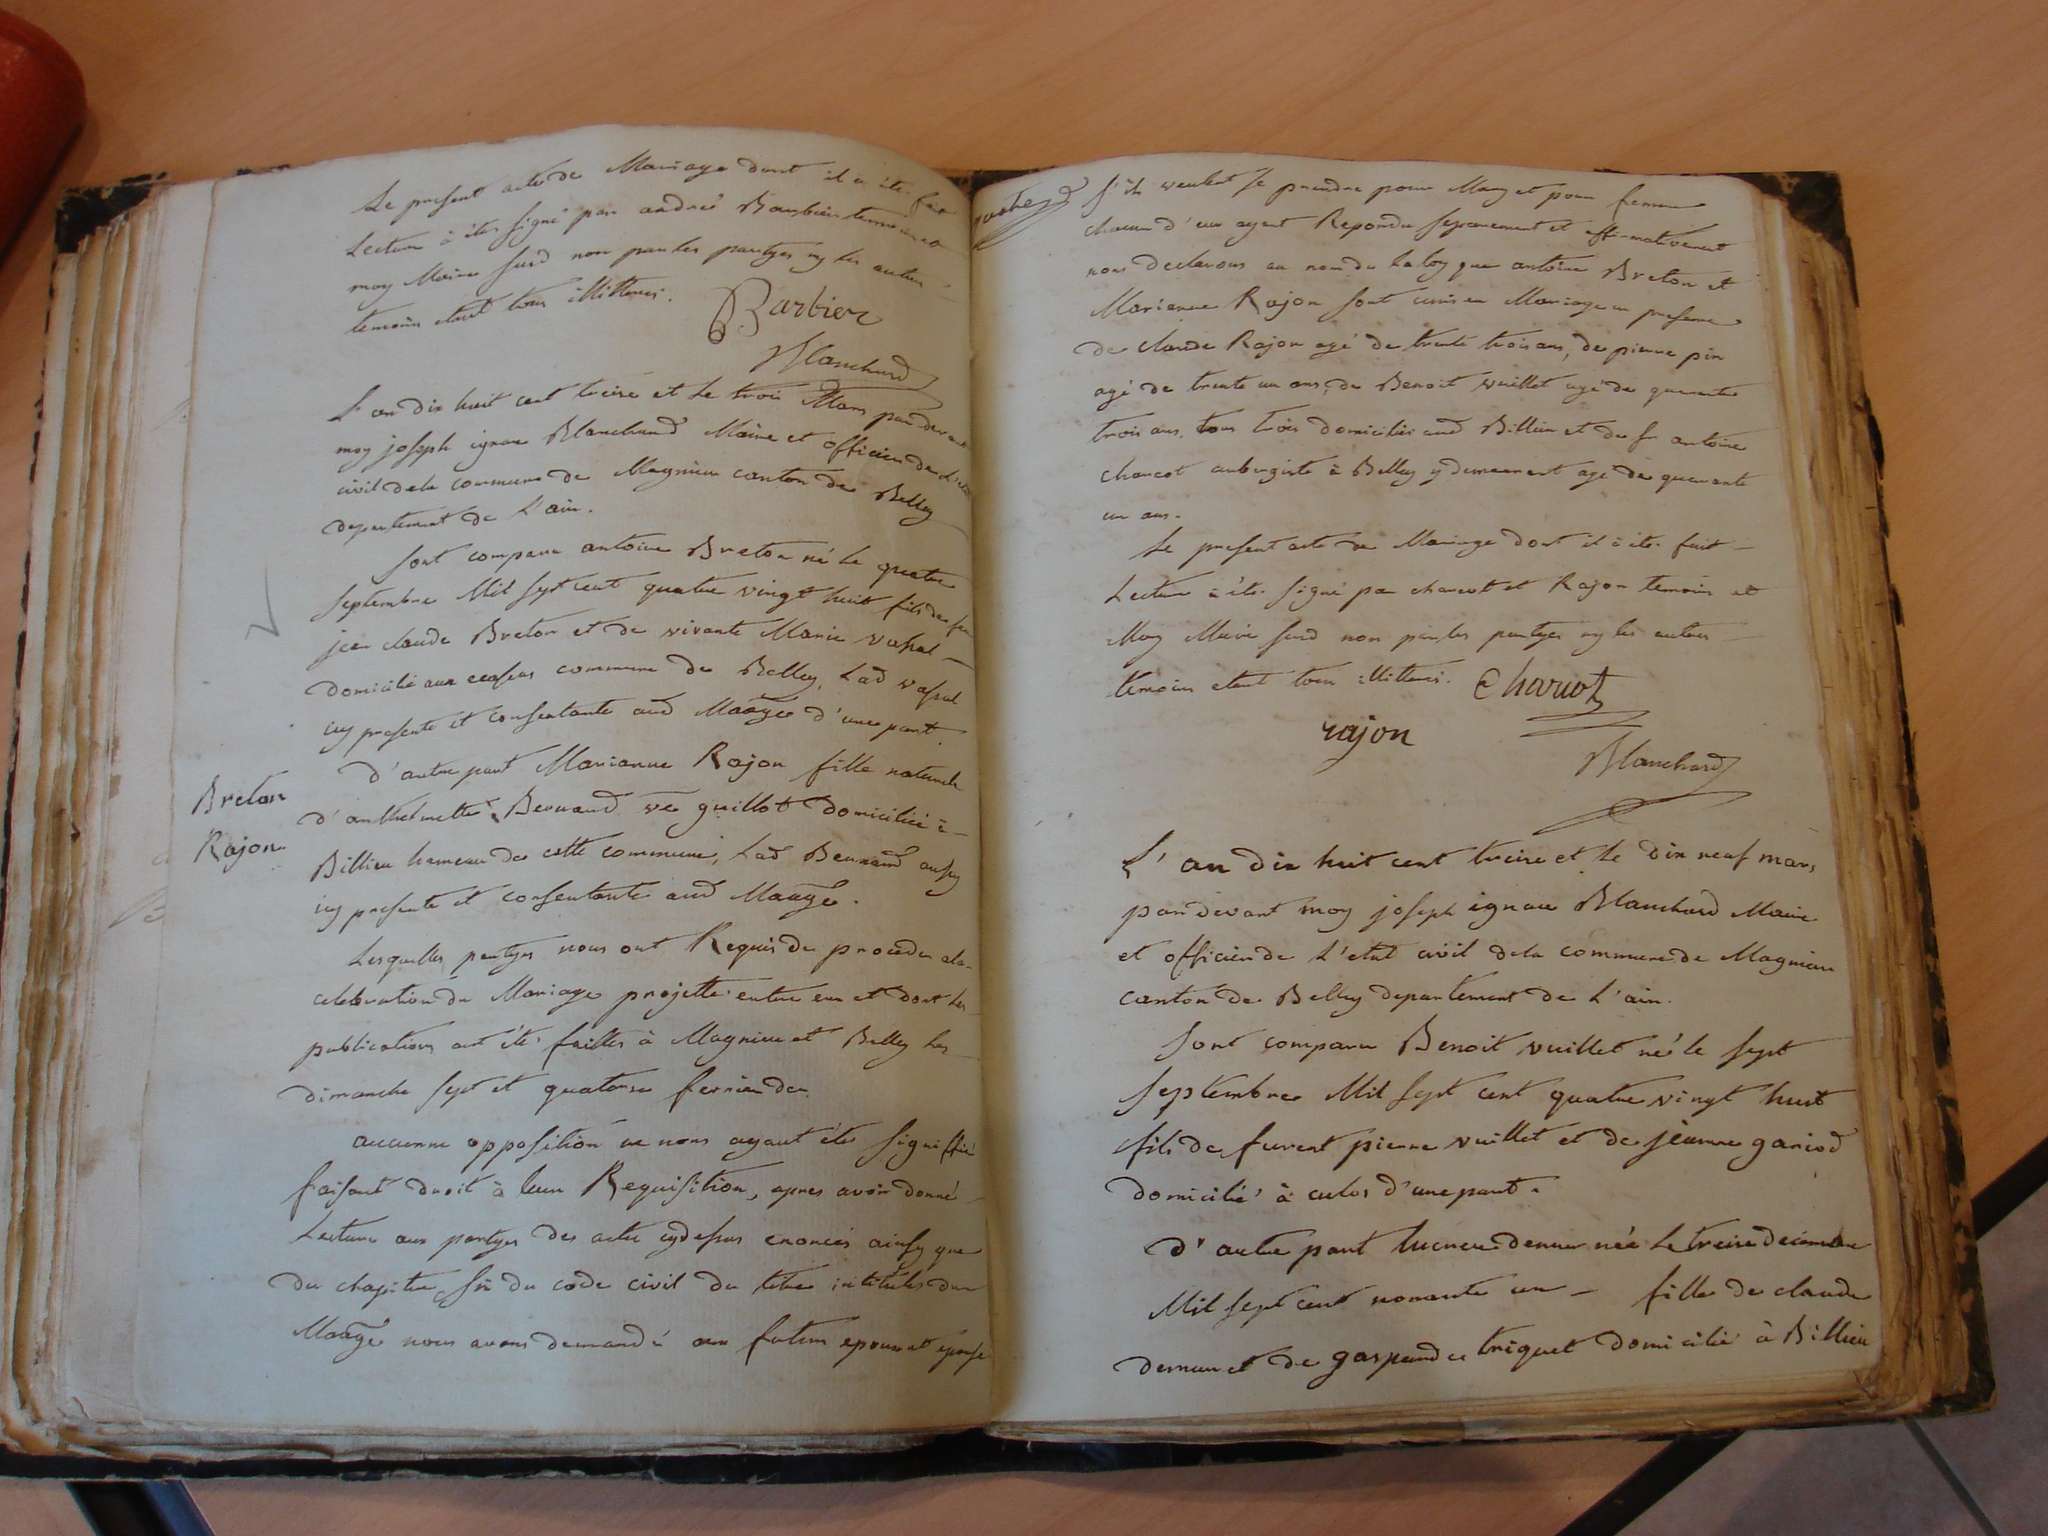 Le present acte de Mariage dont il a été fait
Lecture à été signé par andré Barbier temoin et
moy Maire susd non par les partyes ny les autres
temoins etant tous illitteres.
Barbier
Blanchard
L'an dix huit cent treize et le trois Mars par devant
moy joseph ignace Blanchard Maire et officier de L'etat
civil dela commune de Magnieu canton de Belley
departement de L'ain.
sont comparu antoine Breton né le quatre
septembre Mil sept cent quatre vingt huit fils de feu
jean claude Breton et de vivante Marie vassal
domicilié aux commune de Belley, Lad vassal
icy presente et consentante aud Maage d'une part.
Breton
Rajon
d'autre part Marianne Rajon fille naturele
d'anthelmette Bernard ve guillot domiciliée à
Billieu hameau de cette commune, Lad Bernard aussy
icy presente et consentante aud Maage.
Lesquelles partyes nous ont Requis de proceder ala
celebration du Mariage projetté entre eux et dont les
publications ont été faittes à Magnieu et Belley les
dimanche sept et quatorze fevrier der
aucunne opposition ne nous ayant été signiffié
faisant droit à leur Requisition, apres avoir donné
Lecture aux partyes des actes cydessus enoncés ainsy que
du chapitre six du code civil du titre intitulés du
Maage nous avons demandé aux futurs epoux et epouse
s'ils veulent se prendre pour Mary et pour femme
chacun d'eux ayant Repondu separement et affirmativement
nous declarons au nom de la loy que antoine Breton et
Marianne Rajon sont unis en Mariage en presence
de claude Rajon agé de trente trois ans, de pierre pin
agé de trente un ans, de Benoit vuillet agé de quarante
trois ans, tous trois domiciliés aud Billieu et du sr antoine
charcot aubergiste à Belley y demeurant agé de quarante
un ans.
Le present acte de Mariage dont il à été fait
Lecture à été signé par charcot et Rajon temoins et
Moy Maire susd non par les partyes ny les autres
temoins etant tous illitteres.
Charcot
rajon
Blanchard
L'an dix huit cent treize et le dix neuf mars
par devant moy joseph ignace Blanchard Maire
et officier de L'etat civil dela commune de Magnieu
canton de Belley departement de L'ain.
Sont comparu Benoit vuillet né le sept
septembre Mil sept cent quatre vingt huit
fils de furent pierre vuillet et de jeanne gariod
domicilié à culos d'une part.
d'autre part née Le treize decembre
Mil sept cent nonante un - fille de claude
et de gasparde triquet domicilié à Billieu